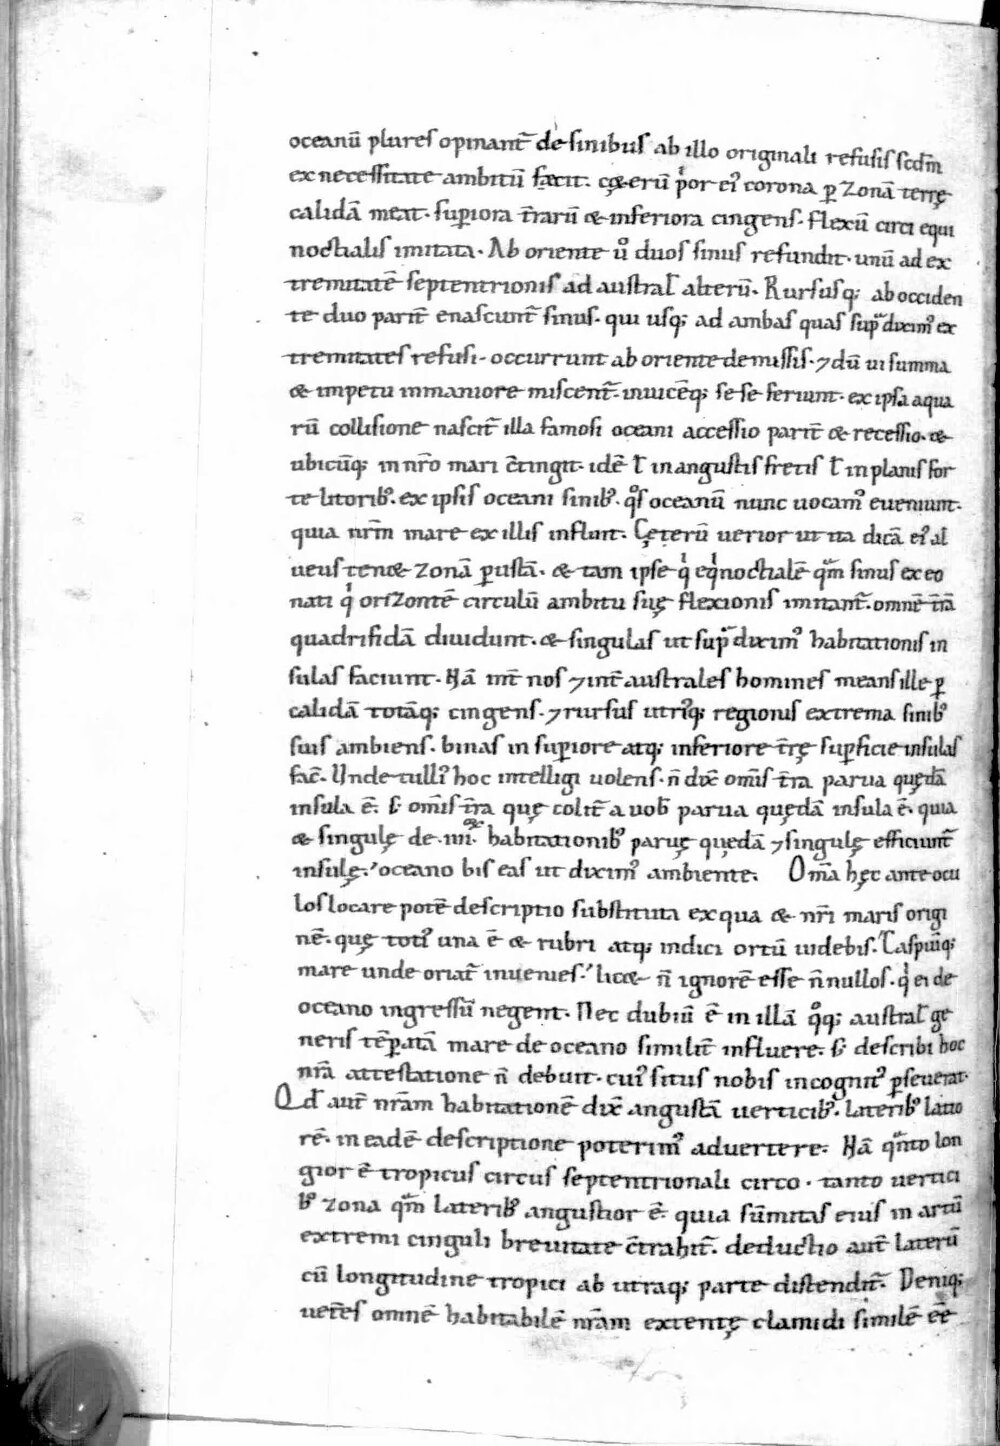 oceanū plures opinant̄ de sinibus ab illo originali refusis scdm̄
ex necessitate ambitū fecit. cęterū p̓or ei᷒ corona ꝑ zonā terrę
calidā meat. suꝑiora t̄rarū & inferiora cingens. flexū circi equi
noctialis imitata. Ab oriente ů duos sinus refundit. unū ad ex
tremitatē septentrionis ad austraƚ alterū. Rursusq; ab occiden
te duo parit̄ enascunt̄ sinus. qui usq; ad ambas quas sup̄ dixim᷒ ex
tremitates refusi. occurrunt ab oriente demissis. ⁊ dū ui summa
& impetu inmaniore miscent̄. inuicēq; se se feriunt. ex ipsa aqua
rū collisione nascit̄ illa famosi oceani accessio parit̄ & recessio. &
ubicūq; in nr̄o mari c̄tingit. idē ƚ in angustis fretis ƚ in planis for
te litorib᷒. ex ipsis oceani sinib᷒. qͦs oceanū nunc uocam᷒ eueniunt.
quia nr̄m mare ex illis influit. Cęterū uerior ut ita dicā ei᷒ al
ueus ten& zonā ꝑustā. & tam ipse qͥ eqͥnoctialē qͣm sinus ex eo
nati qͥ orizontē circulū ambitu suę flexionis imitant̄. omnē t̄rā
quadrifidā diuidunt. & singulas ut sup̄ dixim᷒ habitationis in
sulas faciunt. Nā int̄ nos ⁊ int̄ australes homines means ille ꝑ
calidā totāq; cingens. ⁊ rursus utri᷒q; regionis extrema sinib᷒
suis ambiens. binas in suꝑiore atq; inferiore t̄rę suꝑficie insulas
fac̄. Unde tulli᷒ hoc intelligi uolens. n̄ dix̄ om̄is t̄ra parua quędā
insula ē. s; om̄is t̄ra quę colit̄ a uob̄ parua quędā insula ē. quia
& singulę de .iiii. habitationib᷒ paruę quędā ⁊ singulę efficiunt̄
insulę. oceano bis eas ut dixim᷒ ambiente. Om̄a hęc ante ocu
los locare potē descriptio substituta ex qua & nr̄i maris origi
nē. quę toti᷒ una ē & rubri atq; indici ortū uidebis. Caspiūq;
mare unde oriat̄ inuenies. lic& n̄ ignorē esse n̄nullos. qͥ ei de
oceano ingressū negent. Nec dubiū ē in illā qͦq; austraƚ ge
neris tēꝑatā mare de oceano similit̄ influere. s; describi hoc
nr̄a attestatione n̄ debuit. cui᷒ situs nobis incognit᷒ ꝑseuerat.
Qd̄ aut̄ nr̄am habitationē dix̄ angustā uerticib᷒. laterib᷒ latio
rē. in eadē descriptione poterim᷒ aduertere. Nā qͣnto lon
gior ē tropicus circus septentrionali circo. tanto uertici
b᷒ zona qͣm laterib᷒ angustior ē. quia sūmitas eius in artū
extremi cinguli breuitate c̄trahit̄. deductio aut̄ laterū
cū longitudine tropici ab utraq; parte distendit̄. Deniq;
uet̄es omnē habitabilē nr̄am extentę clamidi similē ēē